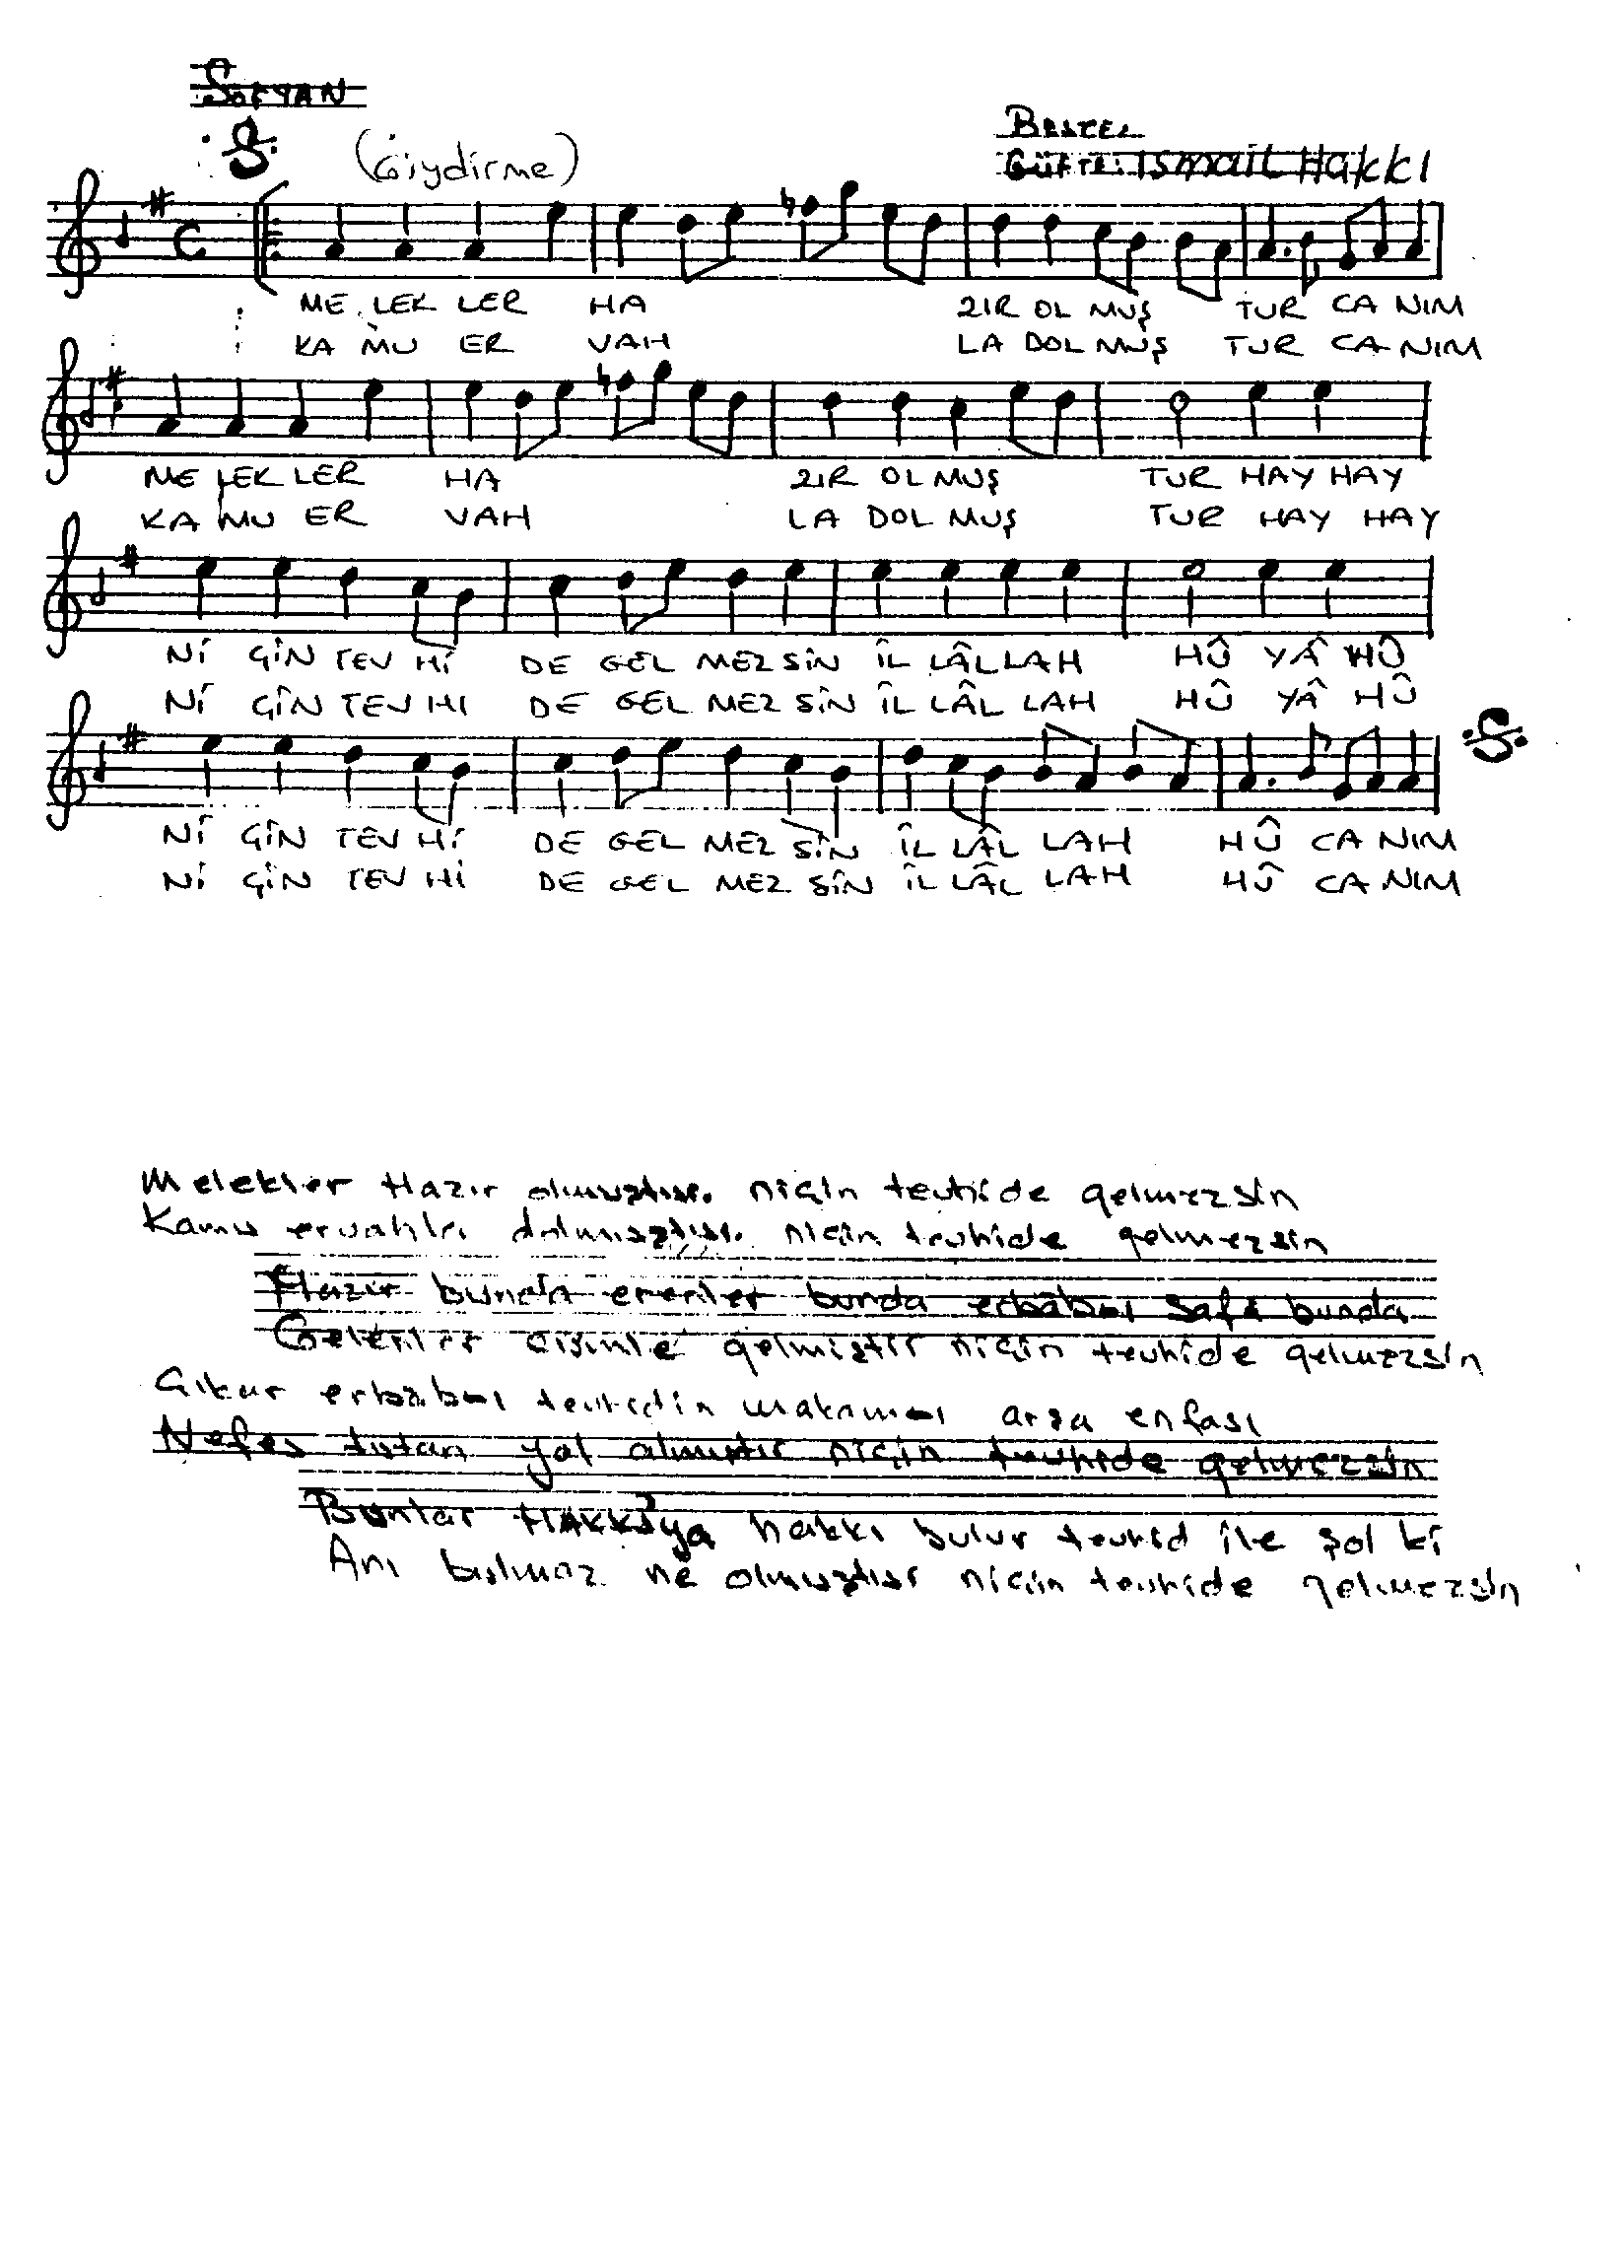 SOFYAN
(Giydirme)
BESTE:
GÜFTE: ISMAİL HAKKI
C
ME LEK LER HA ZIR OL MUŞ TUR CA NIM
KA MU ER VAH LA DOL MUŞ TUR CA NIM
ME LEK LER HA ZIR OL MUŞ TUR HAY HAY
KA MU ER VAH LA DOL MUŞ TUR HAY HAY
Nİ ÇİN TEV Hİ DE GEL MEZ SİN ÎL LÂL LAH HÛ YÂ HÛ
Nİ ÇİN TEV HI DE GEL MEZ SİN ÎL LÂL LAH HÛ YÂ HÛ
Nİ ÇİN TEV Hİ DE GEL MEZ SİN ÎL LÂL LAH HÛ CA NIM
Nİ ÇİN TEV Hİ DE GEL MEZ SİN ÎL LÂL LAH HÛ CA NIM
Melekler Hazır olmuştur. niçin tevhide gelmezsin
Kamu ervahla dolmuştur. niçin tevhide gelmezsin
Hazır bunda erenler bunda erbabı safa bunda
Gelenler niçin tevhide gelmezsin
Çıkar erbabı tevhidin makamı arşa enfası
Nefes tutan yol almıştır niçin tevhide gelmezsin
Bunlar Hakkı'ya hakkı bulur tevhid ile şol ki
Anı bulmaz ne olmuştur niçin tevhide gelmezsin